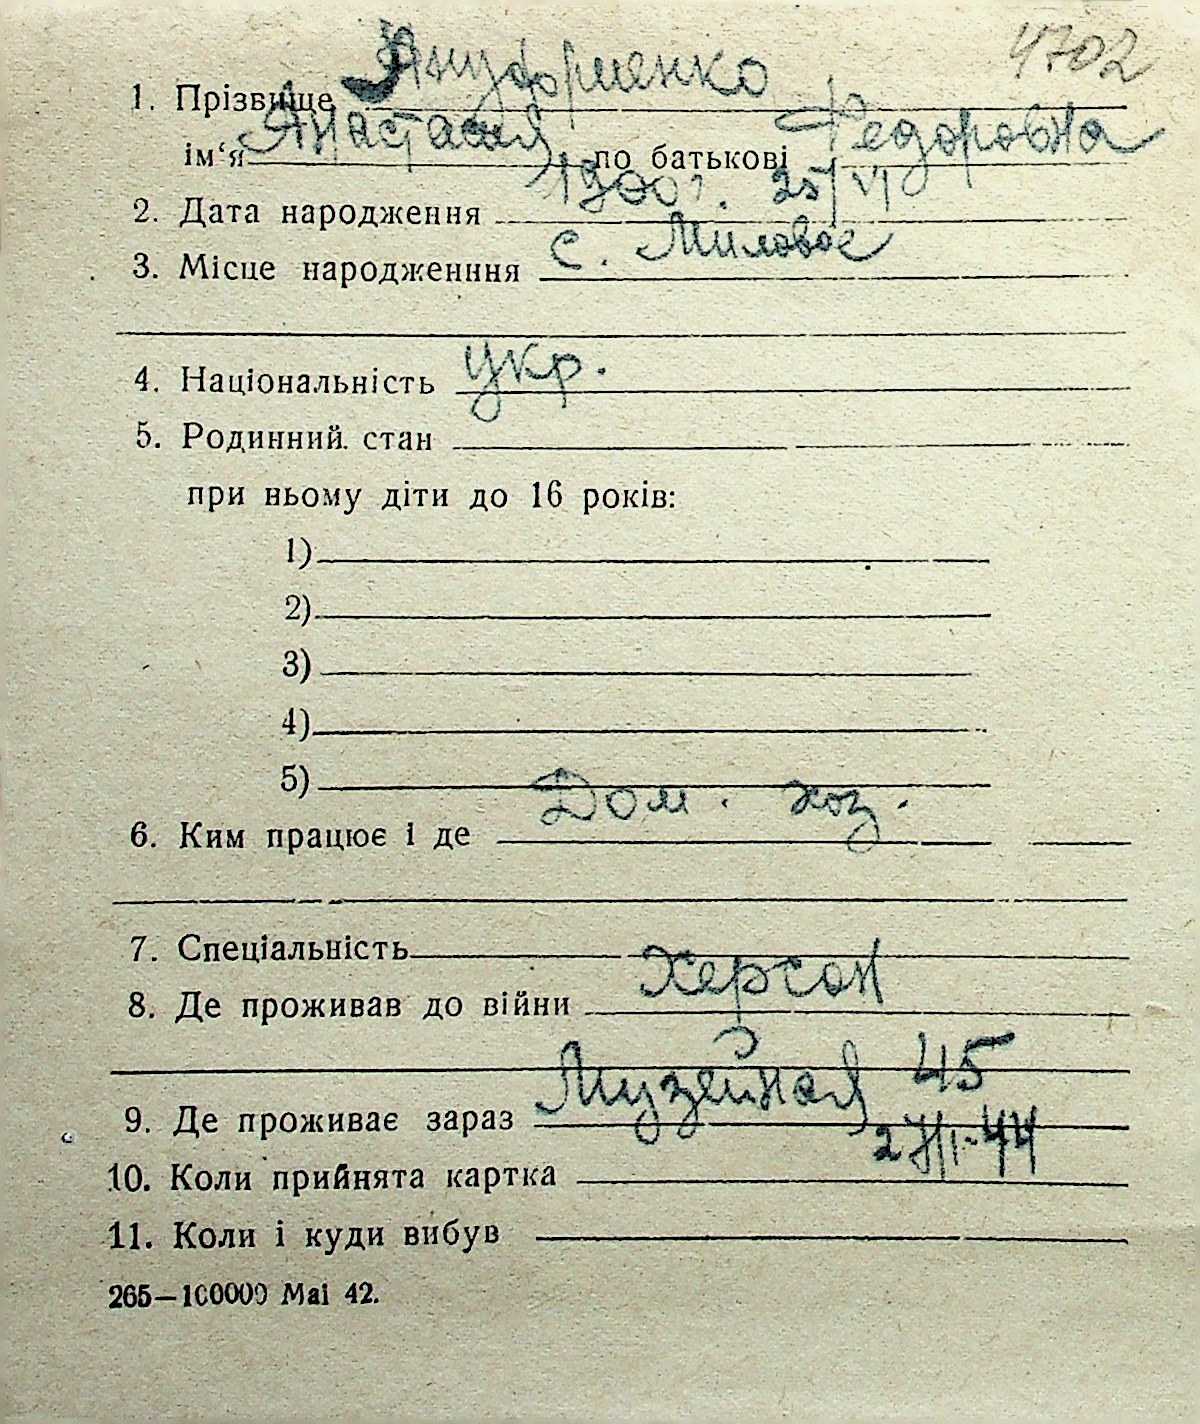 4702
1. Прізвище Ануфриенко
ім‘я Анастасия по батькові Федоровна
2. Дата народження 1900 г. 25/VI
3. Місце народженння с. Миловое
4. Національність укр.
5. Родинний стан
при ньому діти до 16 років:
1)
2)
3)
4)
5)
6. Ким працює і де Дом. хоз.
7. Спеціальність
8. Де проживав до війни Херсон
9. Де проживає зараз Музейная 45
10. Коли прийнята картка 27/I-44
11. Коли і куди вибув
265—100000 Mai 42.